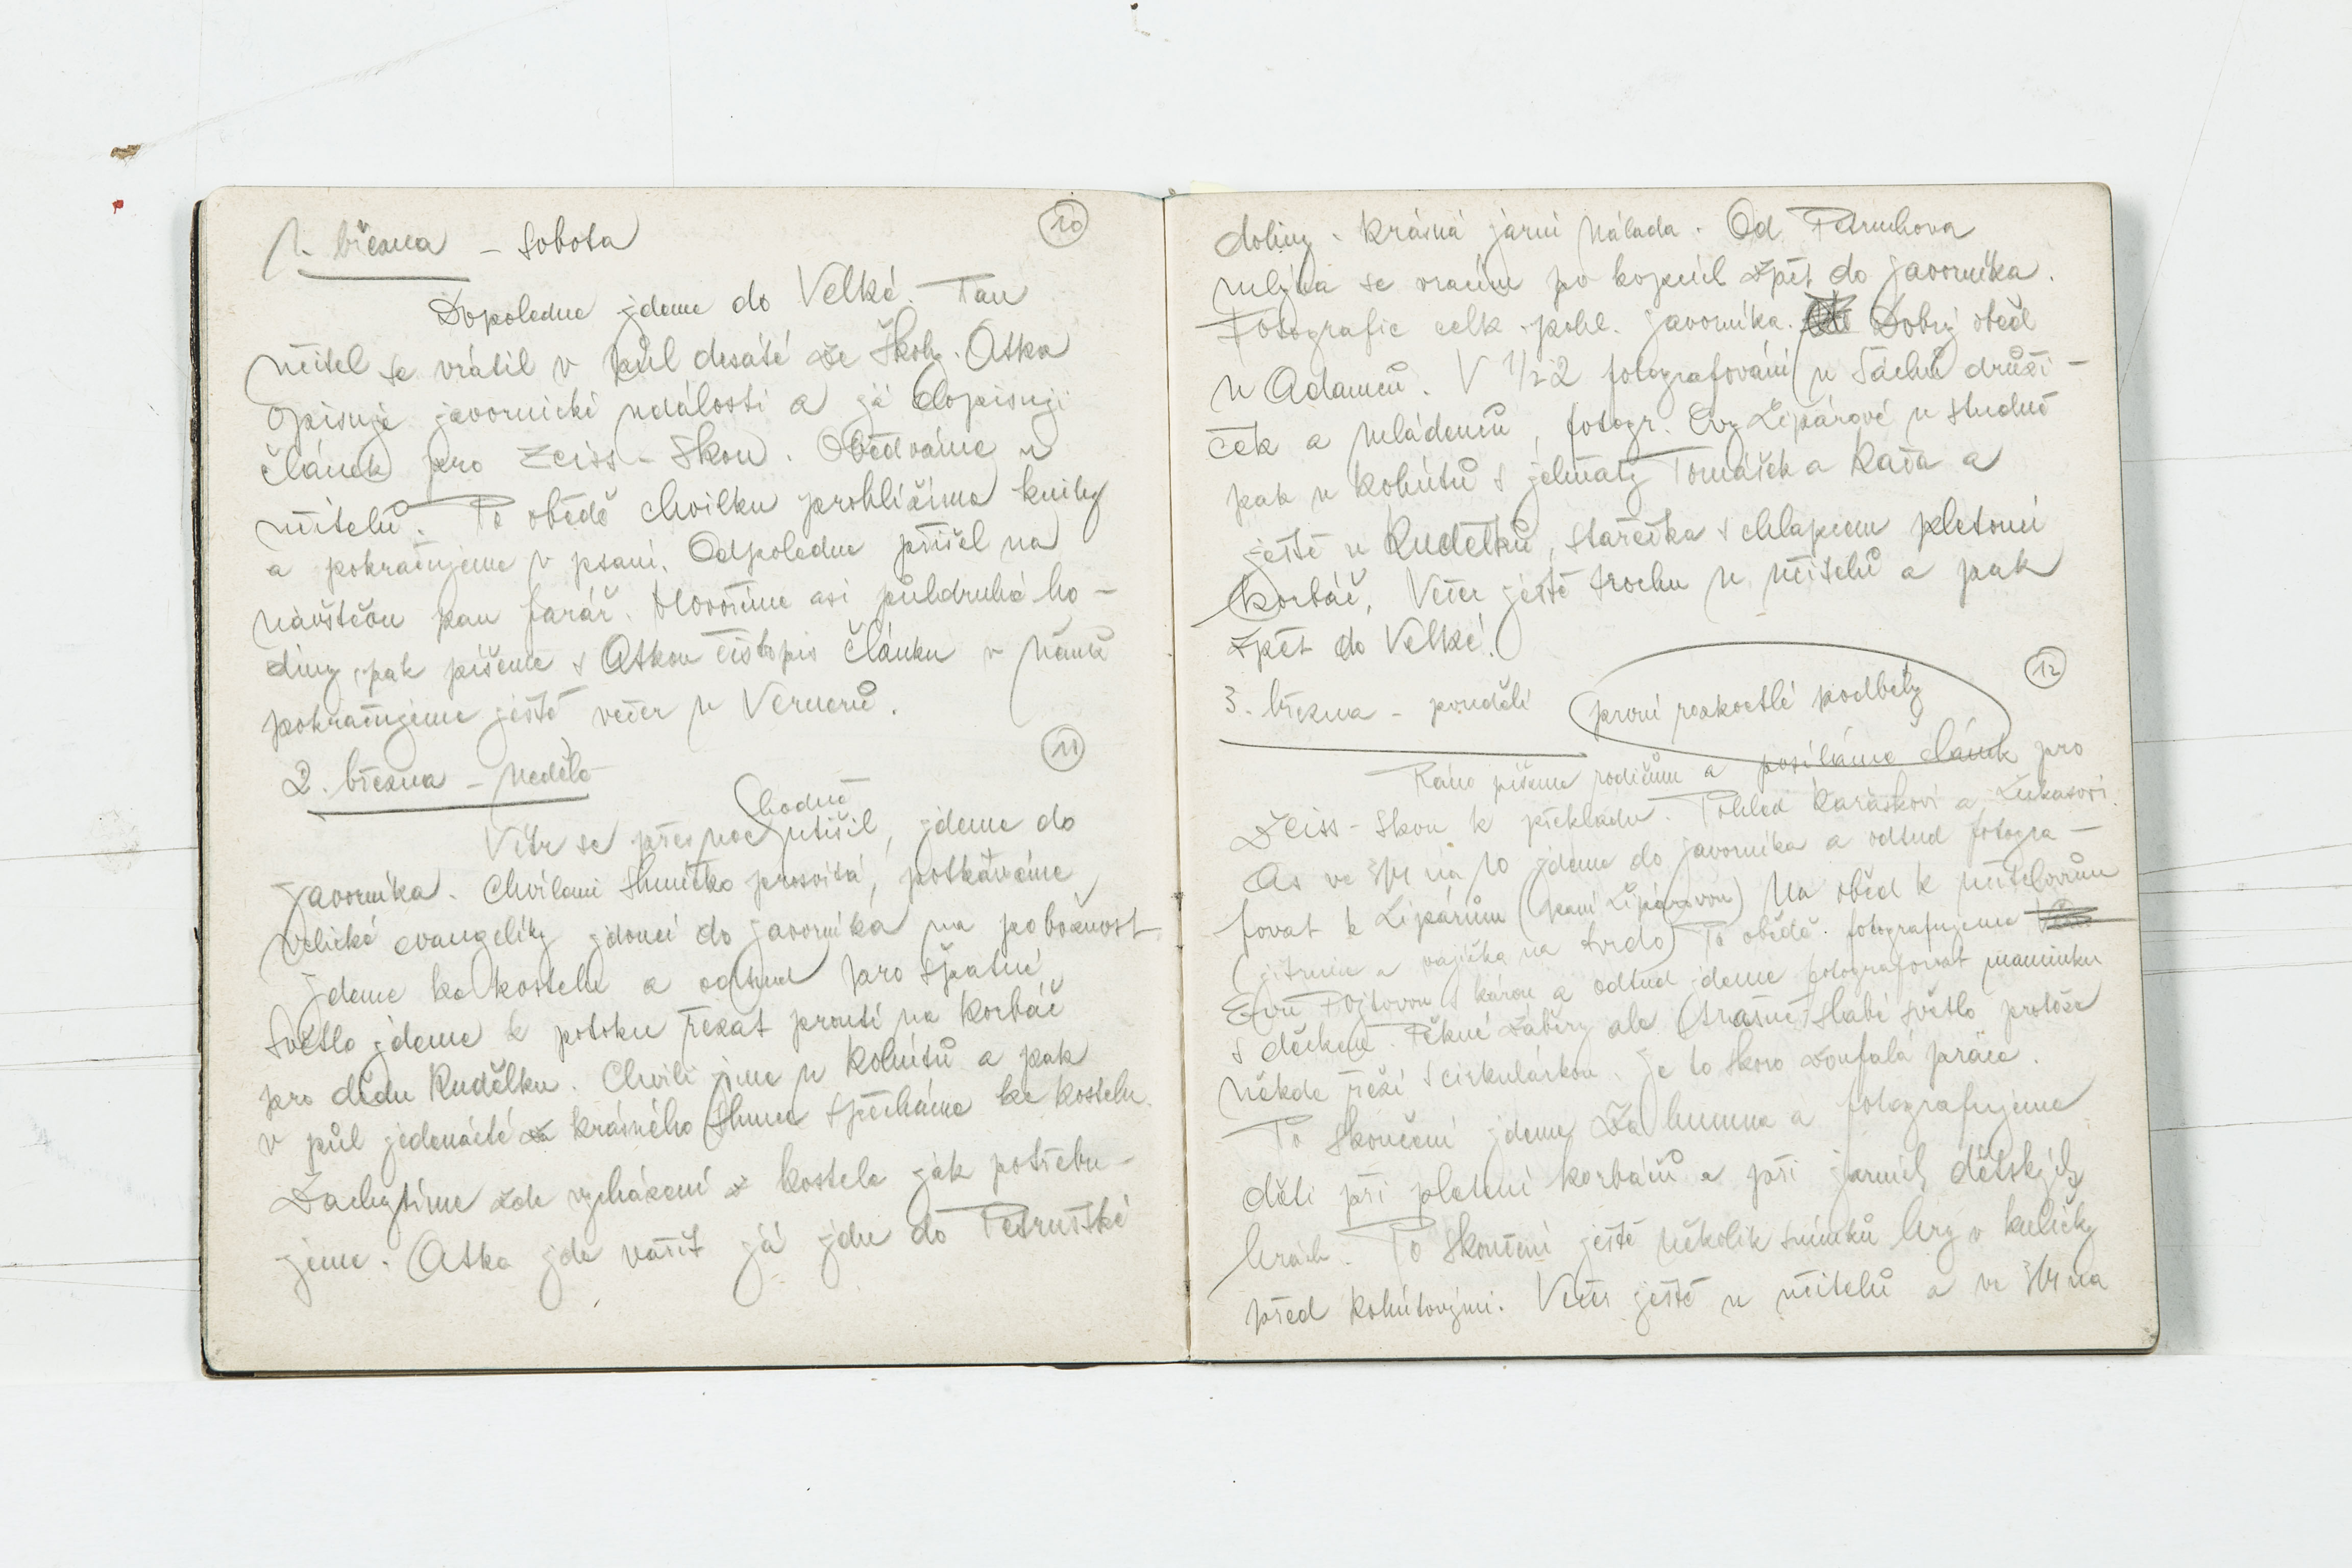 1. března – sobota
10
Dopoledne jdeme do Velké. Pan
učitel se vrátil v půl desáté ze školy. Atka
opisuje javornické události a já dopisuji
článek pro Zeiss-Ikon. Obědváme u
učitelů. Po obědě chvilku prohlížíme knihy
a pokračujeme v psaní. Odpoledne přišel na
návštěvu pan farář. Hovoříme asi půldruhé ho-
diny, pak píšeme s Atkou čistopis článku v němž
pokračujeme ještě večer u Vernerů.
11
2. března – neděle
hodně
Vítr se přes noc utišil, jdeme do
Javorníka. Chvílemi sluníčko prosvitá, potkáváme
velické evangelíky jdoucí do Javorníka na pobožnost
jdeme ke kostelu a odtud pro špatné
světlo jdeme k potoku řezat proutí na korbáč
pro dědu Kudělku. Chvíli jsme u Kohútů a pak
v půl jedenácté za krásného slunce spěcháme ke kostelu.
Zachytíme zde vycházení z kostela jak potřebu-
jeme. Atka jde vařit já jdu do Petrušské
doliny. Krásná jarní nálada. Od Petruchova
mlýna se vracím po kopcích zpět do Javorníka.
Fotografie celk. pohl. Javorníka. Dobrý oběd
u Adamců. V 1/2 2 fotografování u Šáchů druži-
ček a mládenců, fotogr. Evy Lipárové u studně
pak u Kohútů s jehňaty Tomášek a Kača a
ještě u Kudělků, stařečka s chlapcem pletoucí
korbáč. Večer ještě trochu u učitelů a pak
zpět do Velké.
12
3. března – pondělí první rozkvetlé podběly
Ráno píšeme rodičům a posíláme článek pro
Zeiss-Ikon k překladu. Pohled Karáskovi a Lukasovi.
As ve 3/4 na 10 jdeme do Javorníka a odtud fotogra-
fovat k Lipárům (paní Lipárovou) Na oběd k učitelovům
(jitrnice a vajíčka na tvrdo) Po obědě fotografujeme
Evu Fojtovou s károu a odtud jdeme fotografovat maminku
s děckem. Pěkné záběry ale strašně slabé světlo protože
někde řeží s cirkulárkou. Je to skoro zoufalá práce.
Po skončení jdeme za humna a fotografujeme
děti při pletení korbáčů a při jarních dětských
hrách. Po skončení ještě několik snímků hry v kuličky
před Kohútovými. Večer ještě u učitelů a ve 3/4 na